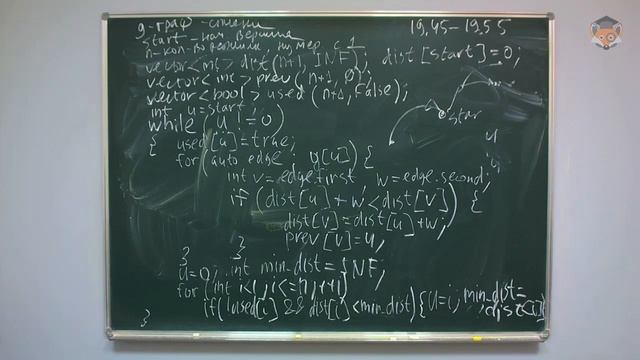 g - граф - списки 19.45-19.55
start - нач. вершина
n - кол-во вершин, нумер. с 1
vector<int> dist(n+1, INF); dist[start]=0;
vector<int> prev(n+1, 0);
vector<bool> used(n+1, false);
int u=start;
while (u!=0)
{ used[u]=true;
for (auto edge : g[u]) {
int v=edge.first w=edge.second;
if (dist[u]+w<dist[v]) {
dist[v]=dist[u]+w;
prev[v]=u;
}
}
u=0; int min_dist=INF;
for (int i=1; i<=n; ++i)
if(!used[i] && dist[i]<min_dist){u=i; min_dist=
dist[i]}
}
star
u